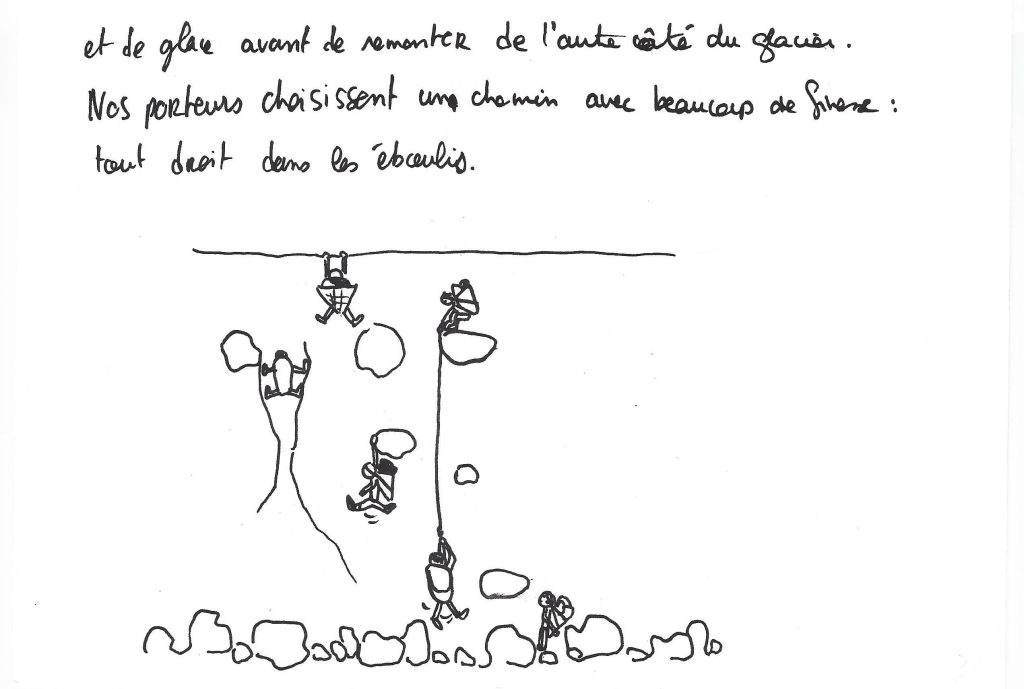 et de glace avant de remonter de l'autre côté du glacier.
Nos porteurs choisissent un chemin avec beaucoup de finesse :
tout droit dans les éboulis.